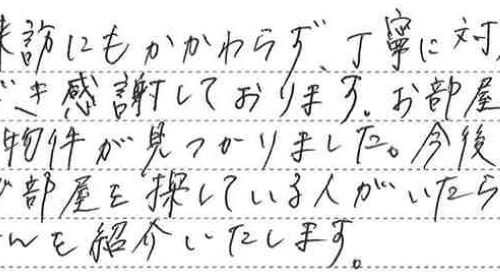 来訪にもかかわらず、丁寧に対
き感謝しております。お部屋
物件が見つかりました。今後
部屋を探している人がいたら
んを紹介いたします。